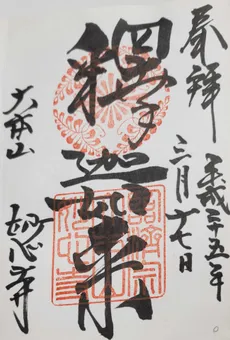 奉拝
平成二十五年
三月十七日
釋迦如来
大本山
妙心寺